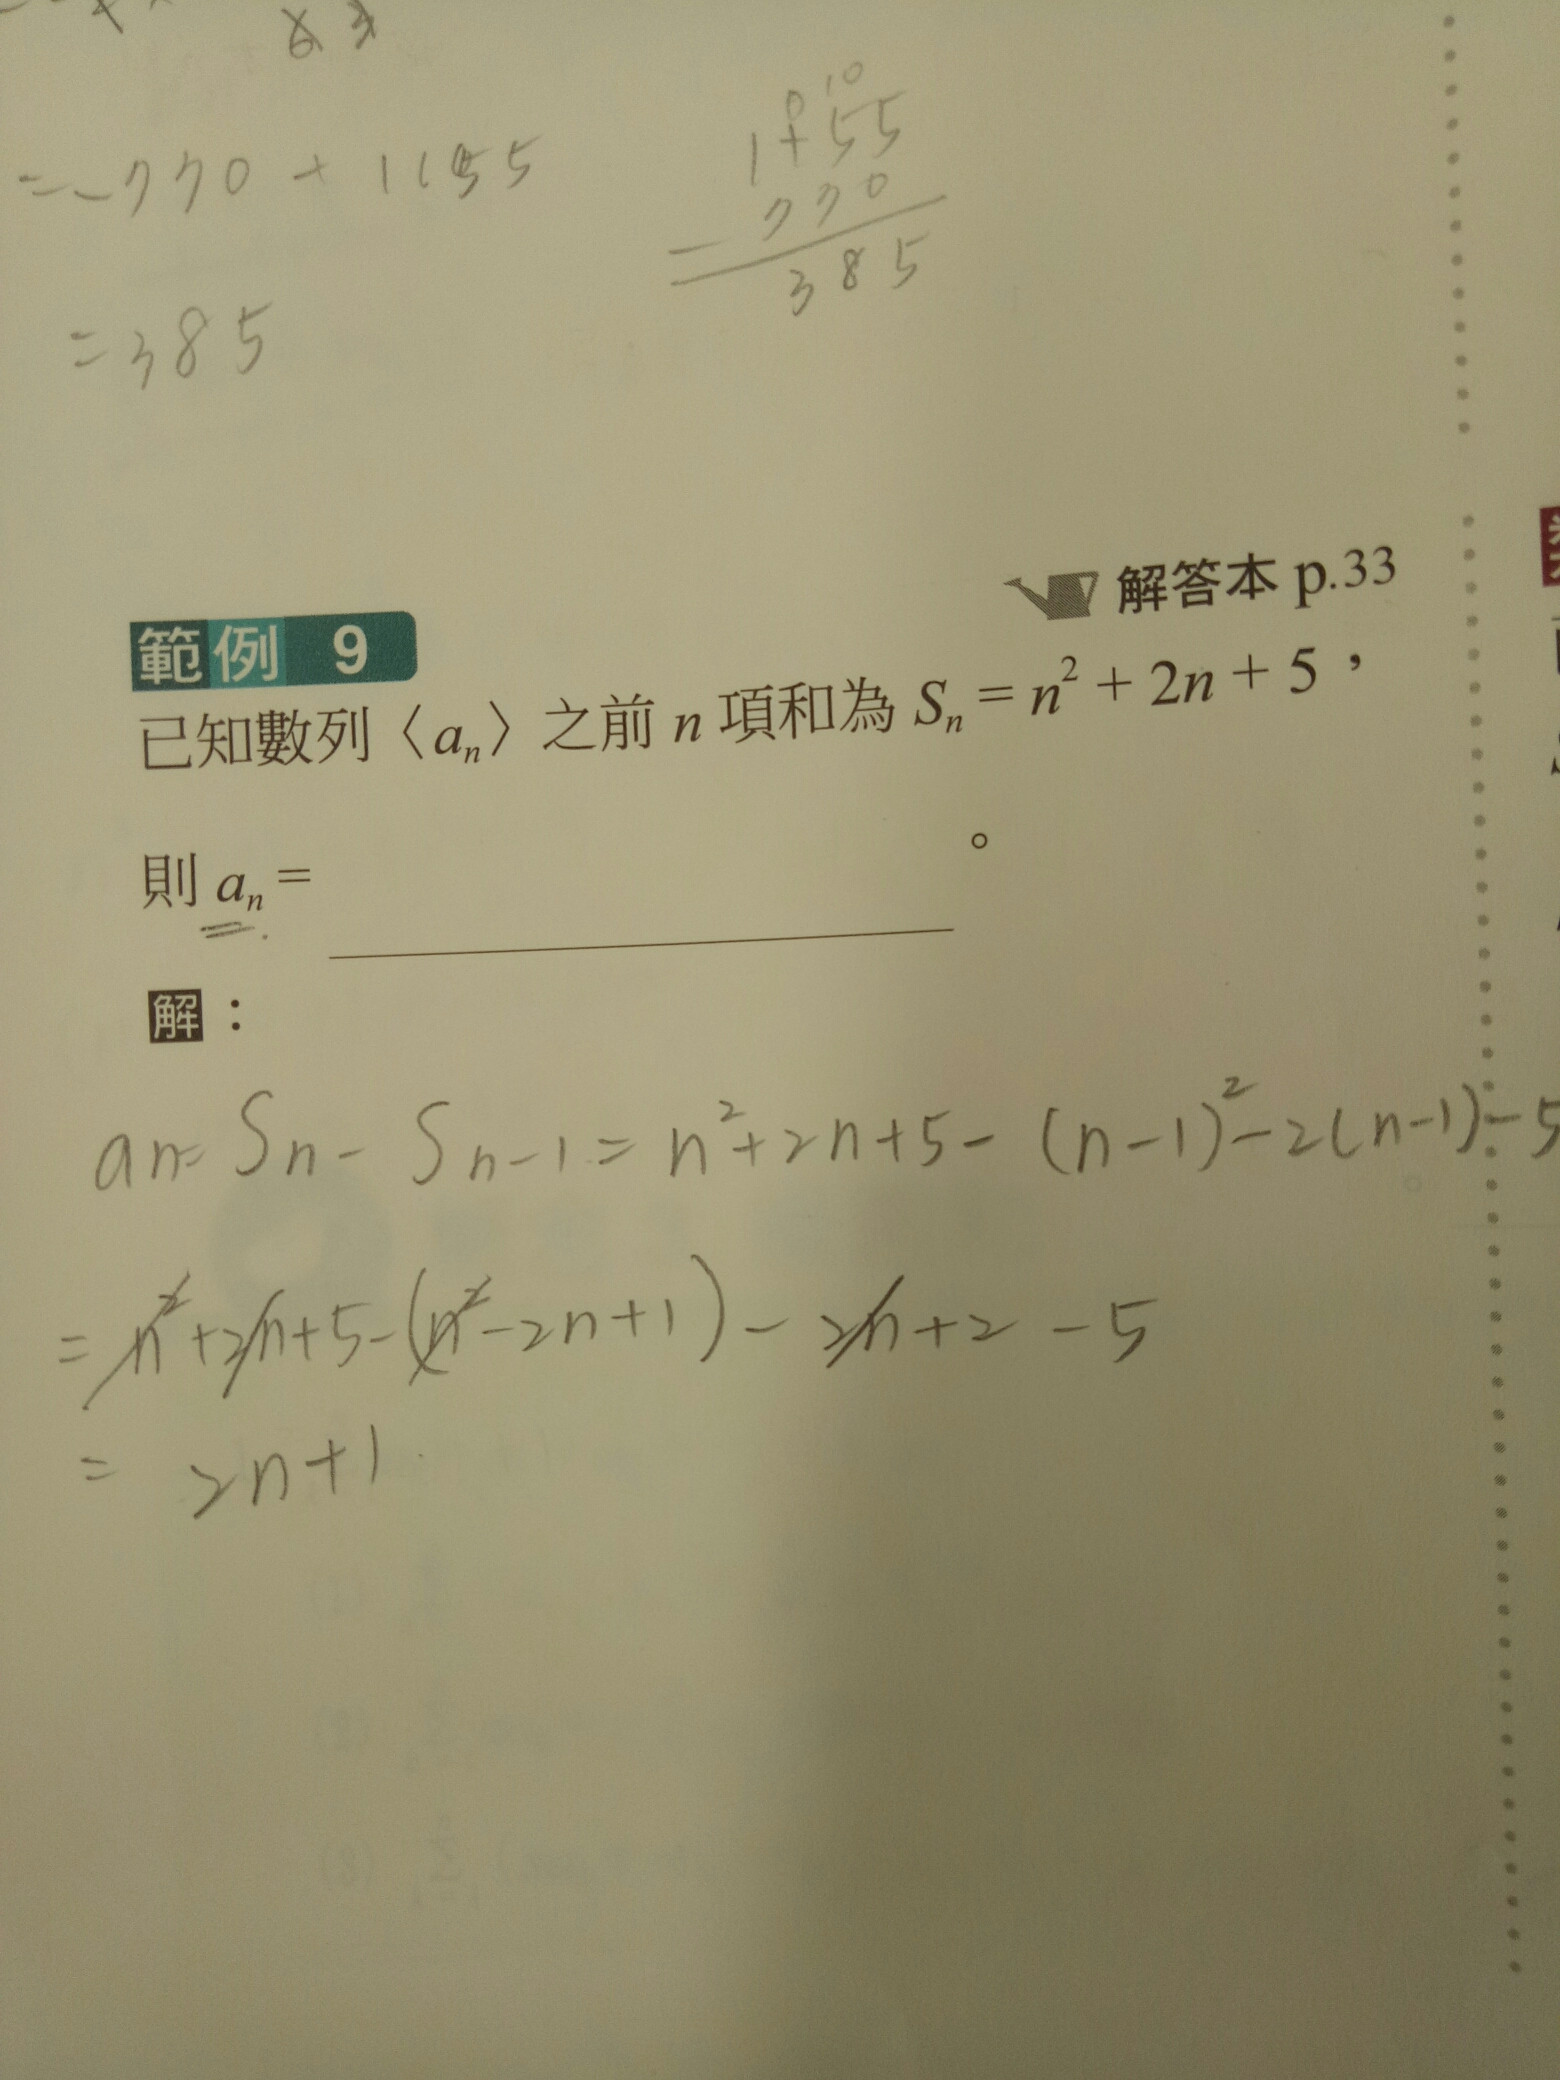 = -770 + 1155
1155
- 770
385
= 385
解答本 p.33
範例 9
已知數列〈aₙ〉之前 n 項和為 Sₙ = n² + 2n + 5，
則 aₙ = ________ 。
解：
an = Sn - Sn-1 = n² + 2n + 5 - (n-1)² - 2(n-1) - 5
= n² + 2n + 5 - (n² - 2n + 1) - 2n + 2 - 5
= 2n + 1